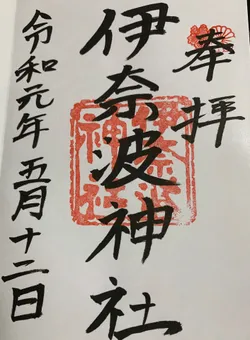 奉拝
伊奈波神社
令和元年五月十二日
伊奈波
神社